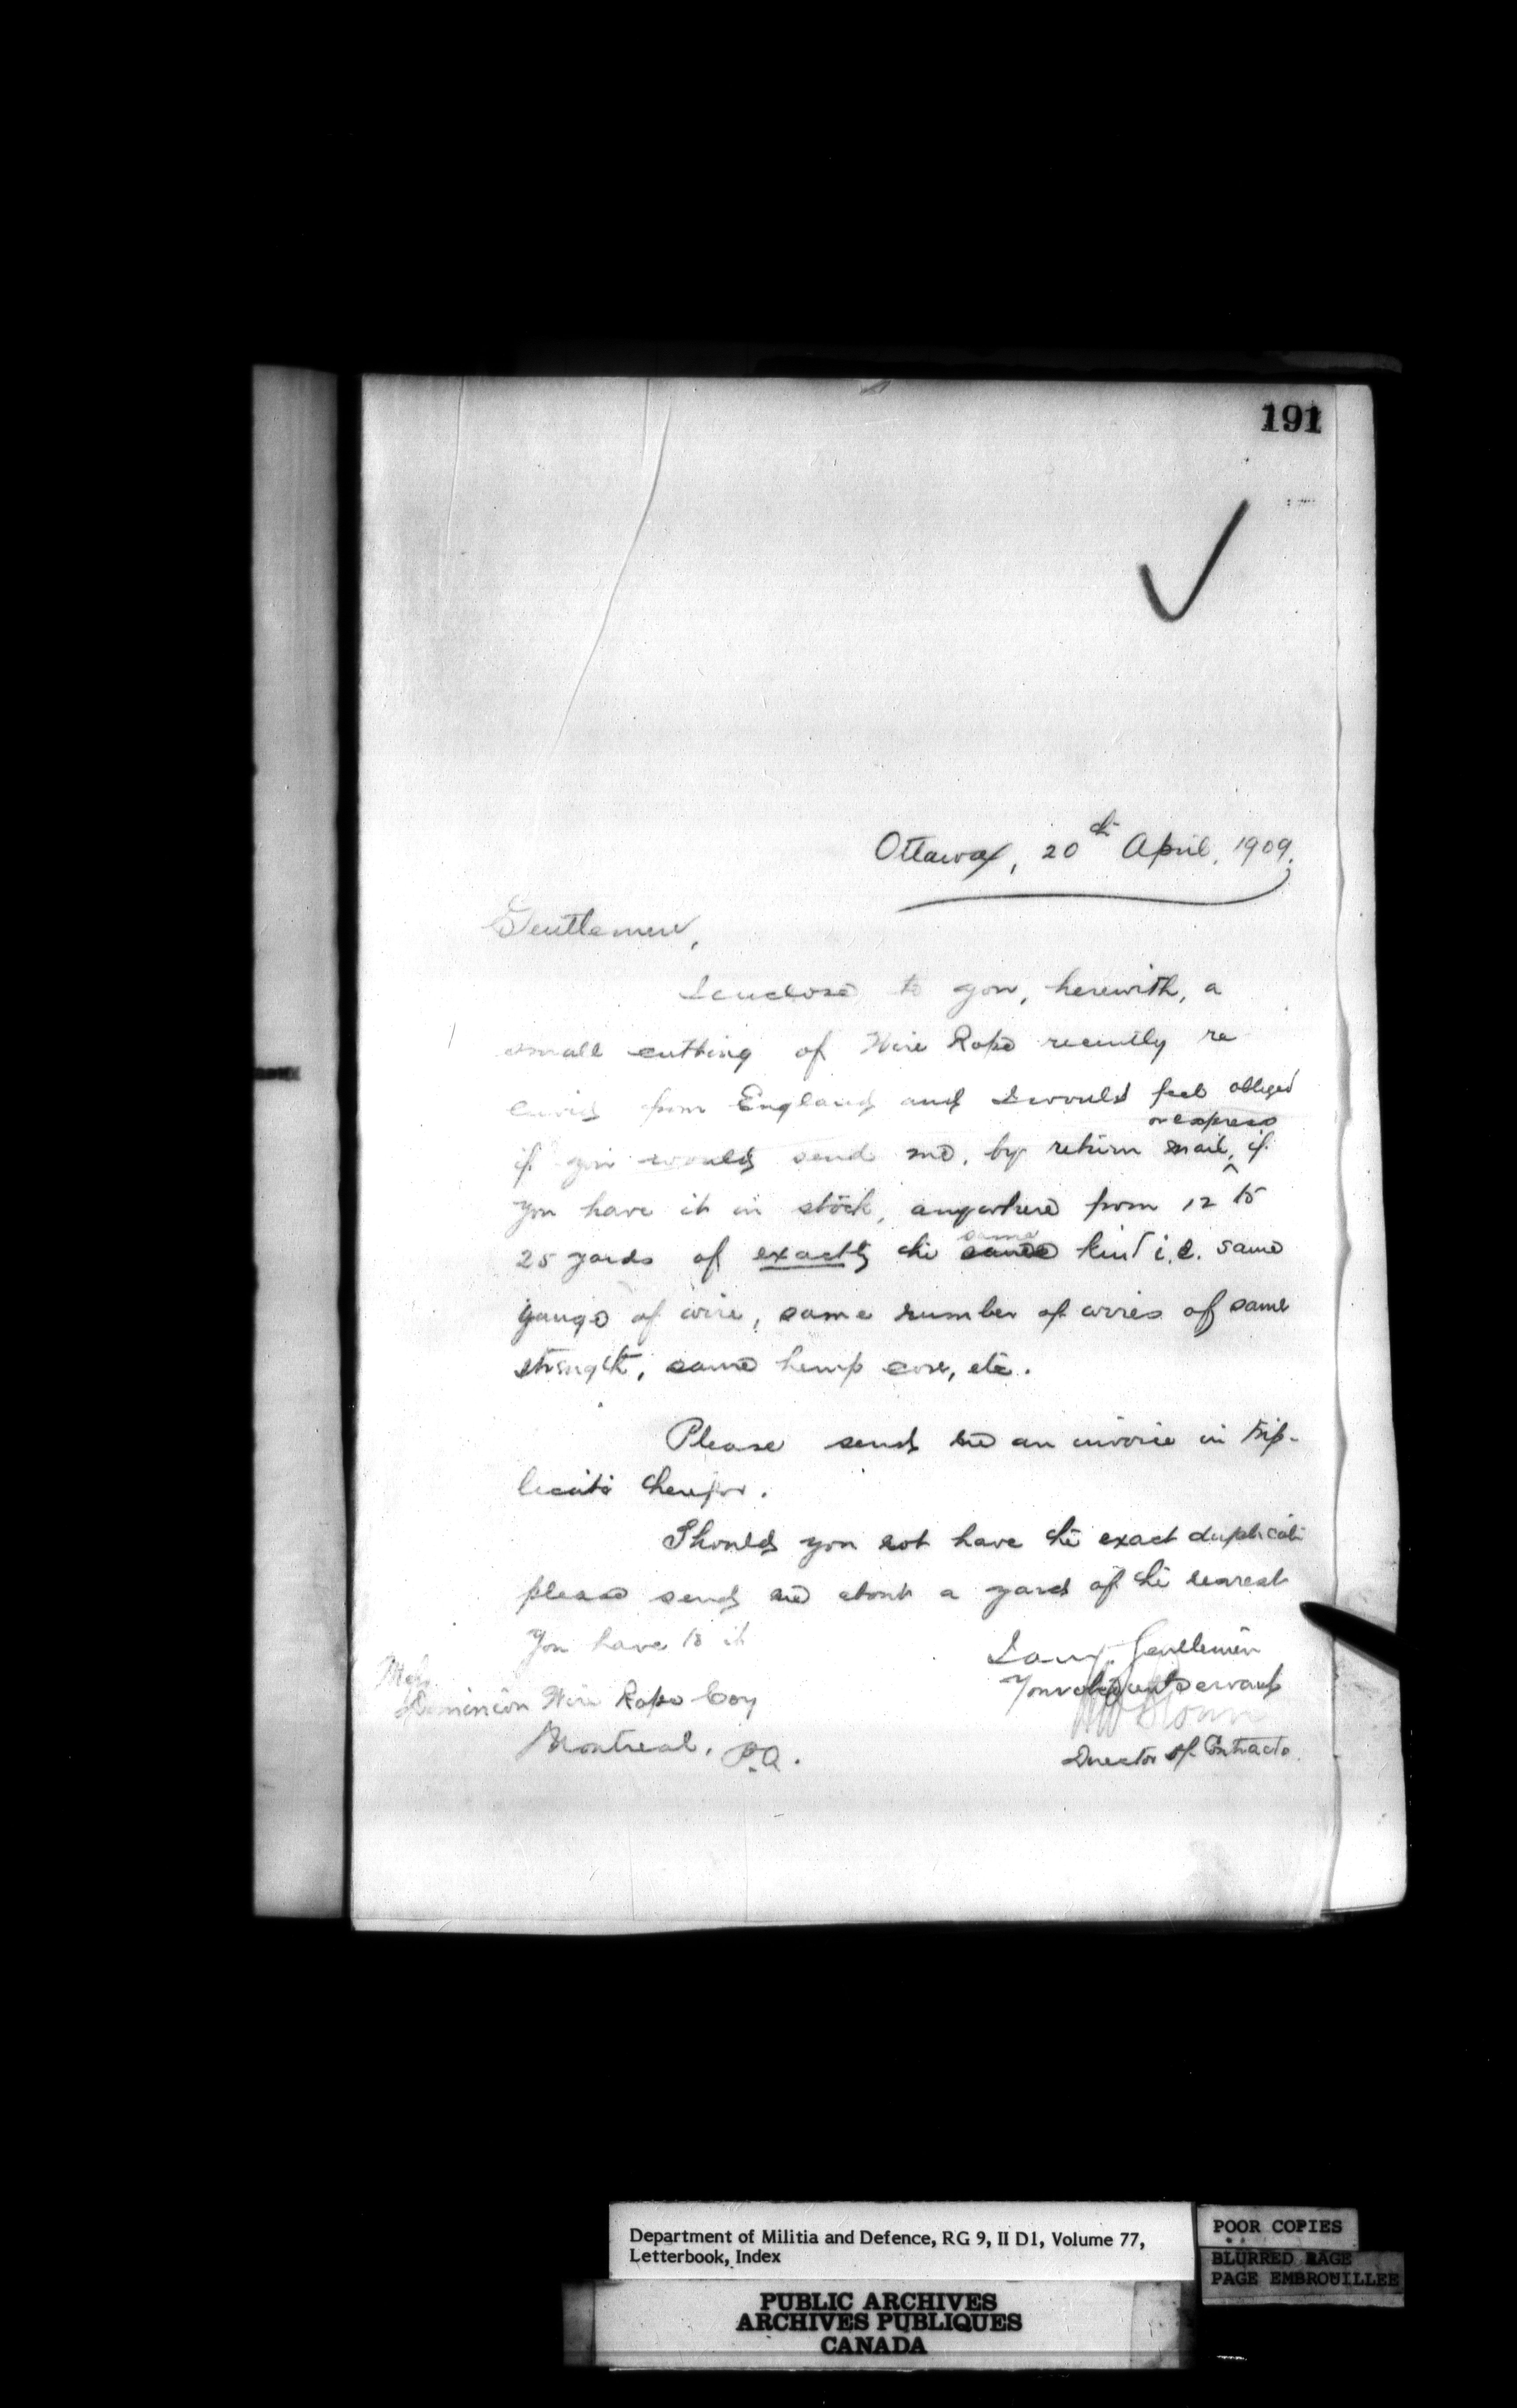 191
Ottawa, 20th April, 1909.
Gentlemen,
I enclose to you, herewith, a
small cutting of Wire Rope recently re
ceived from England and I would feel obliged
or express
if you would send me, by return mail, if
you have it in stock, anywhere from 12 to
25 yards of exactly the same same kind i.e. same
gauge of wire, same number of wires of same
strength, same hemp core, etc.
Please send me an invoice in trip-
licate therefor.
Should you not have the exact duplicate
please send me about a yard of the nearest
you have to it
I am, Gentlemen
Your obedient Servant
Director of Contracts.
Dominion Wire Rope Coy
Montreal, P.Q.
Department of Militia and Defence, RG 9, II D1, Volume 77,
Letterbook, Index
POOR COPIES
BLURRED PAGE
PAGE EMBROUILLEE
PUBLIC ARCHIVES
ARCHIVES PUBLIQUES
CANADA